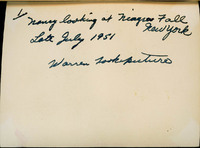 Nancy looking at Niagra Fall
New York
Late July 1951
Warren took picture